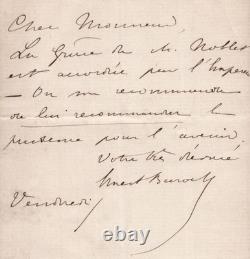 Cher Monsieur,
La Grâce de M. Noblet
est accordée par l'Empereur
— On me recommande
de lui recommander la
prudence pour l'avenir.
Votre très dévoué
Ernest
Vendredi